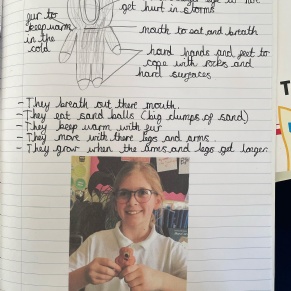 get hurt in storms
fur to
keep warm
in the
cold
mouth to eat and breath
hard hands and feet to
cope with rocks and
hard surfaces
- They breath out there mouth.
- They eat sand balls (big clumps of sand)
- They keep warm with fur
- They move with there legs and arms.
- They grow when the arms and legs get longer.